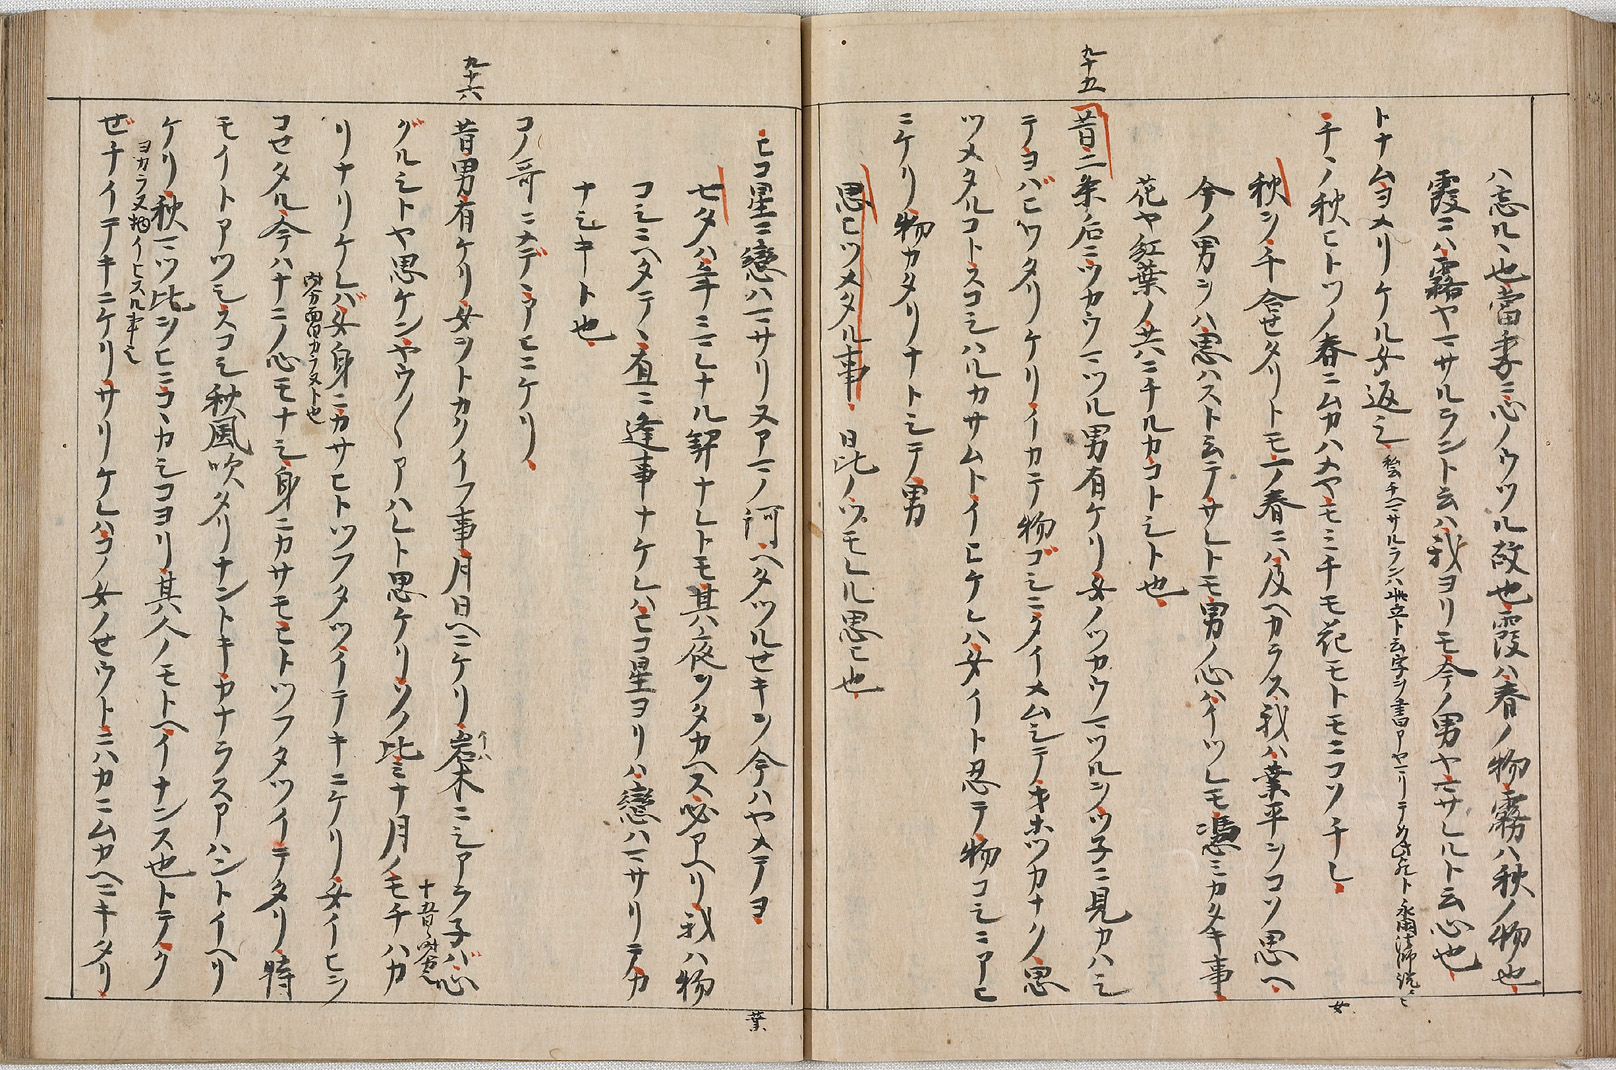 九十五
ハ忘ルヽ也當妻ニ心ノウツル故也霞ハ春ノ物霧ハ秋ノ物也
霞ニハ霧ヤマサルラント云ハ我ヨリモ今ノ男ヤマサルト云心也
トナムヨメリケル女返シ
千ヽノ秋ヒトツノ春ニムカハメヤモミチモ花モトモニコソチレ
秋ヲ千合セタリトモ一ノ春ニハ及ヘカラス我ハ業平ヲコソ思ヘ
今ノ男ヲハ思ハスト云テサレトモ男ノ心ハイツレモ憑ミカタキ事
女
花ヤ紅葉ノ共ニチルカコトシト也
昔二条ノ后ニツカウマツル男有ケリ女ノツカウマツルヲツ子ニ見カハシ
テヨバヒワタリケリイカテ物ゴシニタイメムシテオホツカナク思
ツメタルコトスコシハルカサムトイヒケレハ女イト忍テ物コシニアヒ
ニケリ物カタリナトシテ男
思ヒツメタル事 日比ノツモレル思ヒ也
ヒコ星ニ戀ハマサリヌアマノ河ヘタツルセキヲ今ハヤメテヨ
七夕ハ年ニマレナル契ナレトモ其ハ夜ヲタカヘス必アヘリ我ハ物
葉
コシニヘタテヽ直ニ逢事ナケレハヒコ星ヨリハ戀ハマサリテカ
ナシキト也
コノ哥ニメデヽアヒニケリ
九十六
昔男有ケリ女ヲトカクイフ事月日ヘニケリ岩木ニシアラ子バ心
グルシトヤ思ケンヤウ〳〵アハレト思ケリソノ比ミナ月ノモチハカ
リナリケレバ女身ニカサヒトツフタツイテキニケリ女イヒヲ
コセタル今ハナニノ心モナシ身ニカサモヒトツフタツイテタリ時
モイトアツシスコシ秋風吹タリナントキカナラスアハントイヘリ
ケリ秋マツ比ヲヒニコヽカシコヨリ其人ノモトヘイナンズ也トテク
ヨカラヌ物イヒスル事也
ぜチイテキニケリサリケレハコノ女ノせウトニハカニムカヘニキタリ